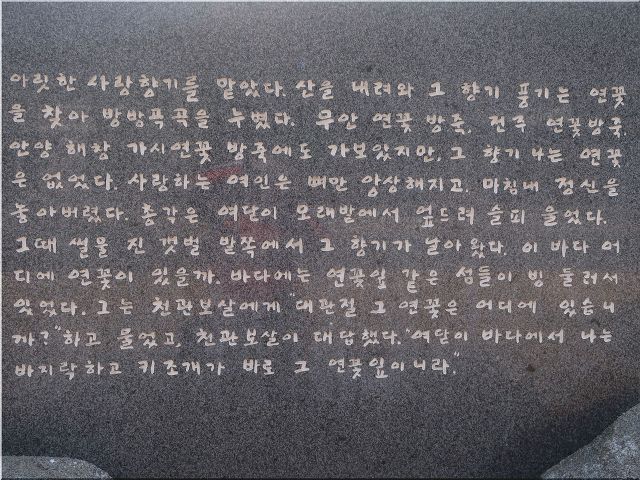 아릿한 사랑향기를 맡았다. 산을 내려와 그 향기 풍기는 연꽃
을 찾아 방방곡곡을 누볐다. 무안 연꽃 방죽, 전주 연꽃방죽,
안양 해창 가시연꽃 방죽에도 가보았지만, 그 향기 나는 연꽃
은 없었다. 사랑하는 여인은 뼈만 앙상해지고, 마침내 정신을
놓아버렸다. 총각은 여닫이 모래밭에서 엎드려 슬피 울었다.
그때 썰물 진 갯벌 밭쪽에서 그 향기가 날아 왔다. 이 바다 어
디에 연꽃이 있을까. 바다에는 연꽃잎 같은 섬들이 빙 둘러서
있었다. 그는 천관보살에게 "대관절 그 연꽃은 어디에 있습니
까?"하고 물었고, 천관보살이 대답했다. "여닫이 바다에서 나는
바지락하고 키조개가 바로 그 연꽃잎이니라."